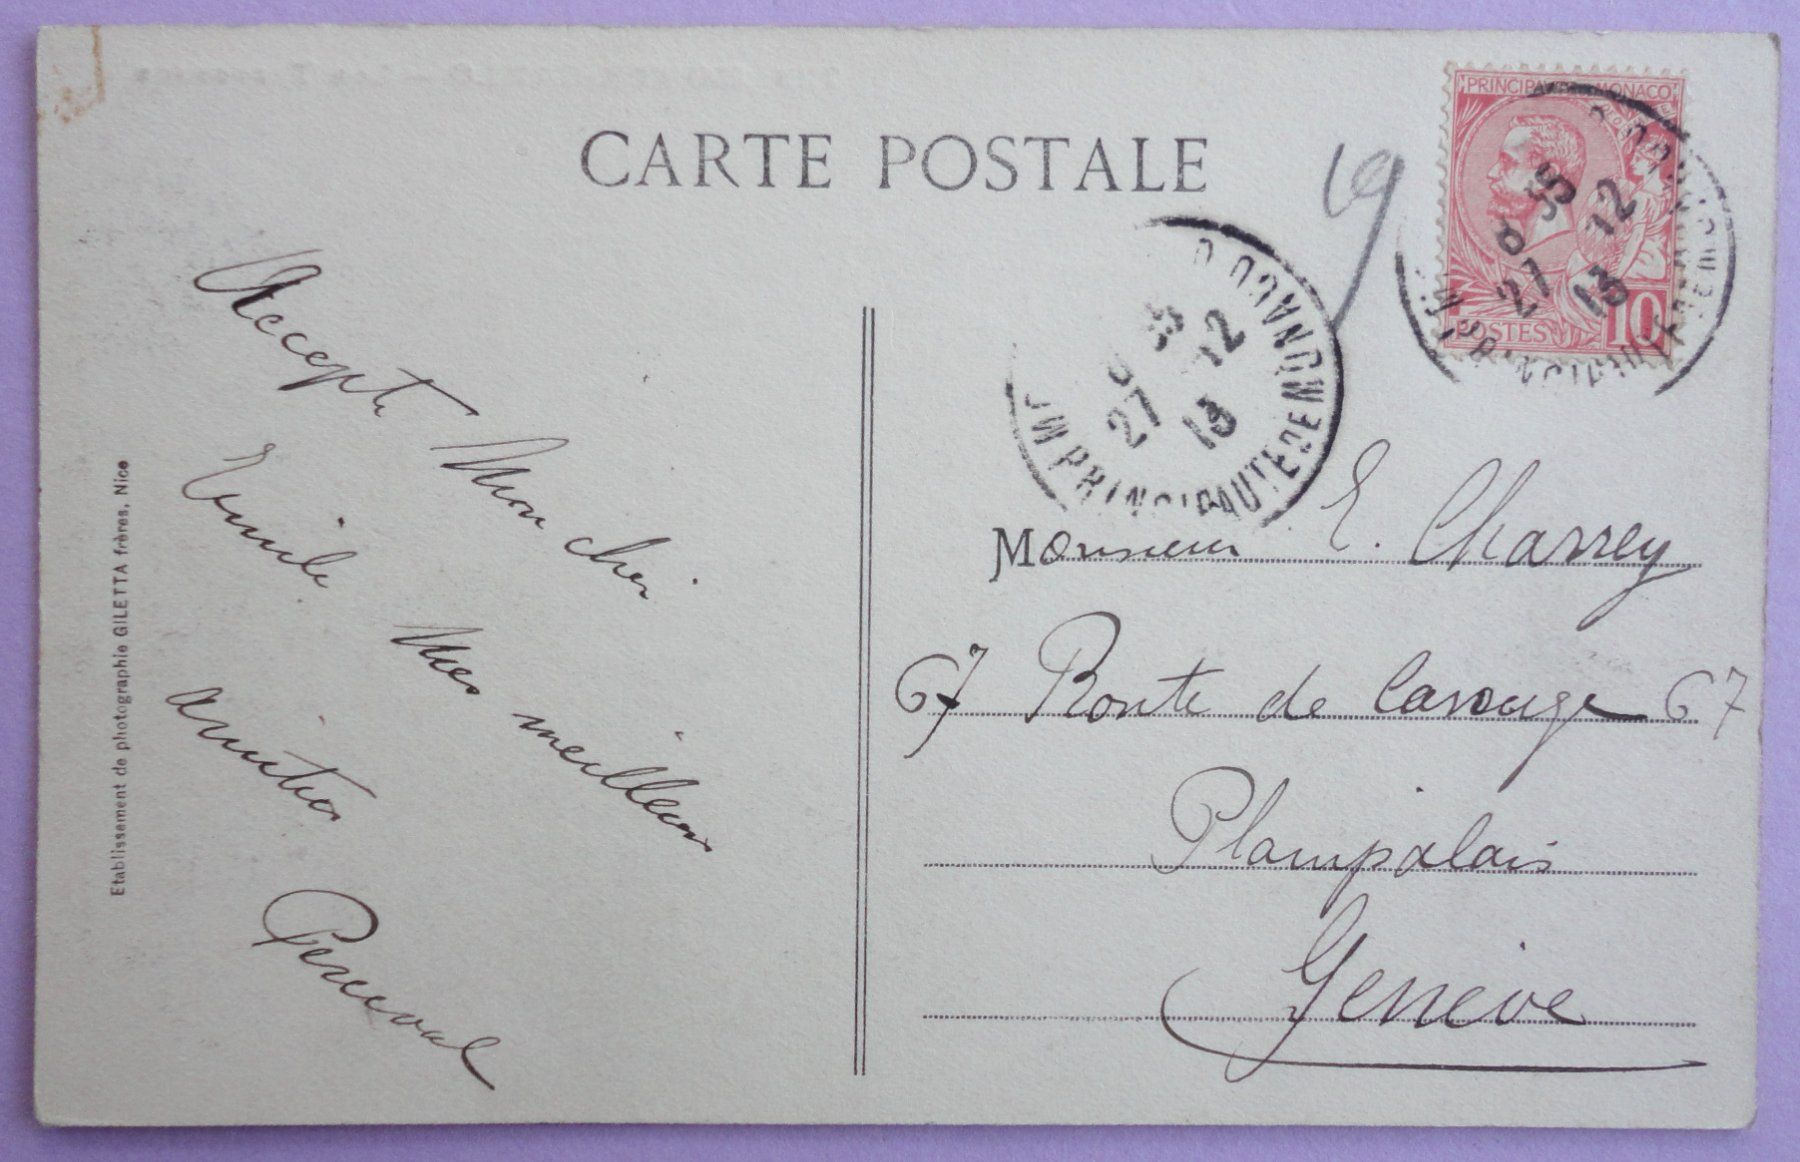 CARTE POSTALE
19
PRINCIPAUTÉ DE MONACO
8 35
27 12
13
POSTES 10
MONACO
35
27 12
13
PRINCIPAUTE DE MONACO
Accepte Mon cher
Emile Mes meilleurs
amitiés
Perceval
Monsieur E. Charrey
67 Route de Carouge 67
Plainpalais
Genève
Etablissement de photographie GILETTA frères, Nice